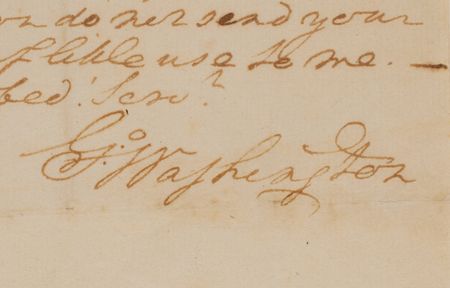 do not send your
of little use to me. —
bed. Serv.t
Go: Washington